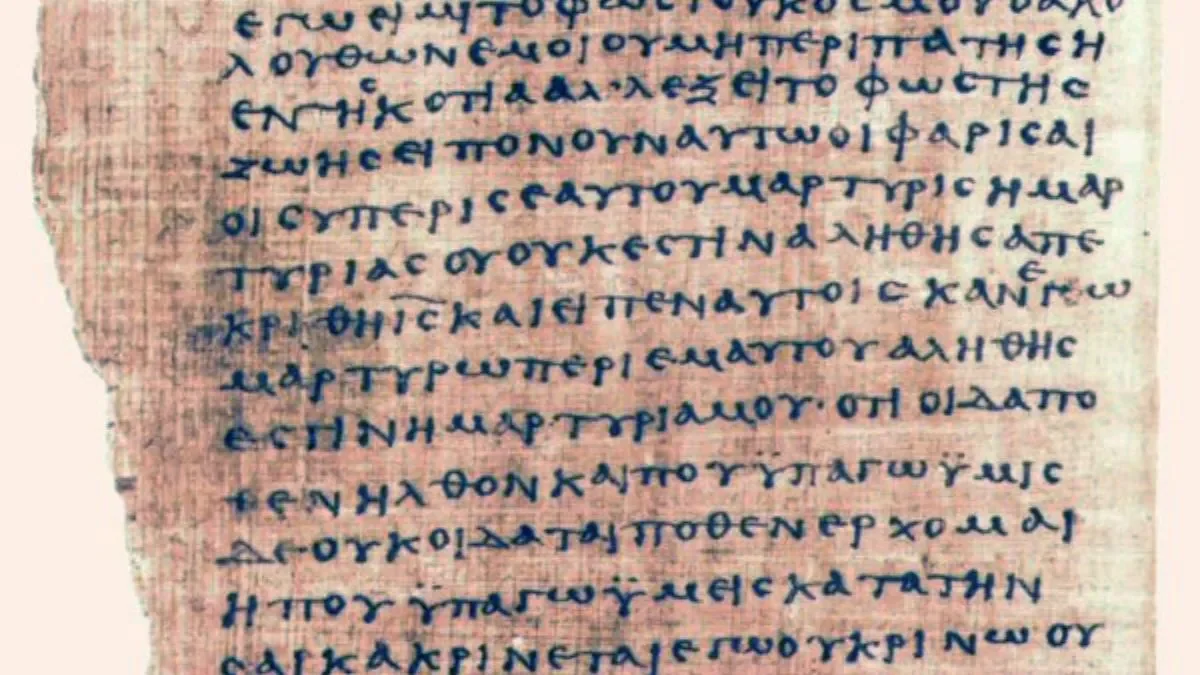 εγωειμιτοφωςτουκοςμουοακο
λουθωνεμοιουμηπεριπατηςη
εντηςκοτιααλ·λεξειτοφωςτης
ζωηςειπονουναυτωοιφαριςαι
οιςυπεριςεαυτουμαρτυριςημαρ
τυριαςουουκεςτιναληθηςαπε
κριθηις̅καιειπεναυτοιςκανεγω
μαρτυρωπεριεμαυτουαληθης
εςτινημαρτυριαμου·οτιοιδαπο
θενηλθονκαιπουϋπαγωϋμις
δεουκοιδαταιποθενερχομαι
ηπουϋπαγωϋμειςκατατην
ςαρκακρινεταιεγωουκρινωου